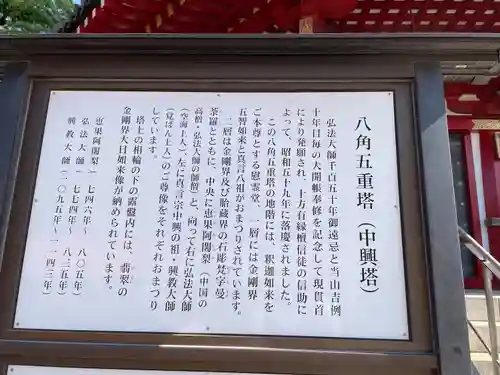 八角五重塔（中興塔）
弘法大師千百五十年御遠忌と当山吉例
十年目毎の大開帳奉修を記念して現貫首
により発願され、十方有縁檀信徒の信助に
よって、昭和五十九年に落慶されました。
この八角五重塔の地階には、釈迦如来を
ご本尊とする慰霊堂、一層には金剛界
五智如来と真言八祖がおまつりされています。
二層は金剛界及び胎蔵界の石彫梵字曼
荼羅とともに、中央に恵果阿闍梨（中国の
高僧・弘法大師の師僧）と、向って右に弘法大師
（空海上人）、左に真言宗中興の祖・興教大師
（覚ばん上人）のご尊像をそれぞれおまつり
しています。
塔上の相輪の下の露盤内には、翡翠の
金剛界大日如来像が納められています。
恵果阿闍梨（七四六年～八〇五年）
弘法大師（七七四年～八三五年）
興教大師（一〇九五年～一一四三年）